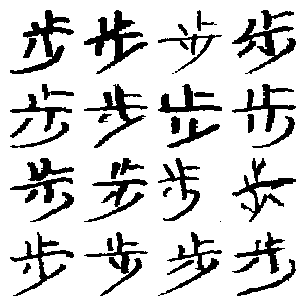 步步步步
步步步步
步步步步
步步步步